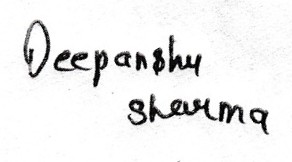 Deepanshu
sharma